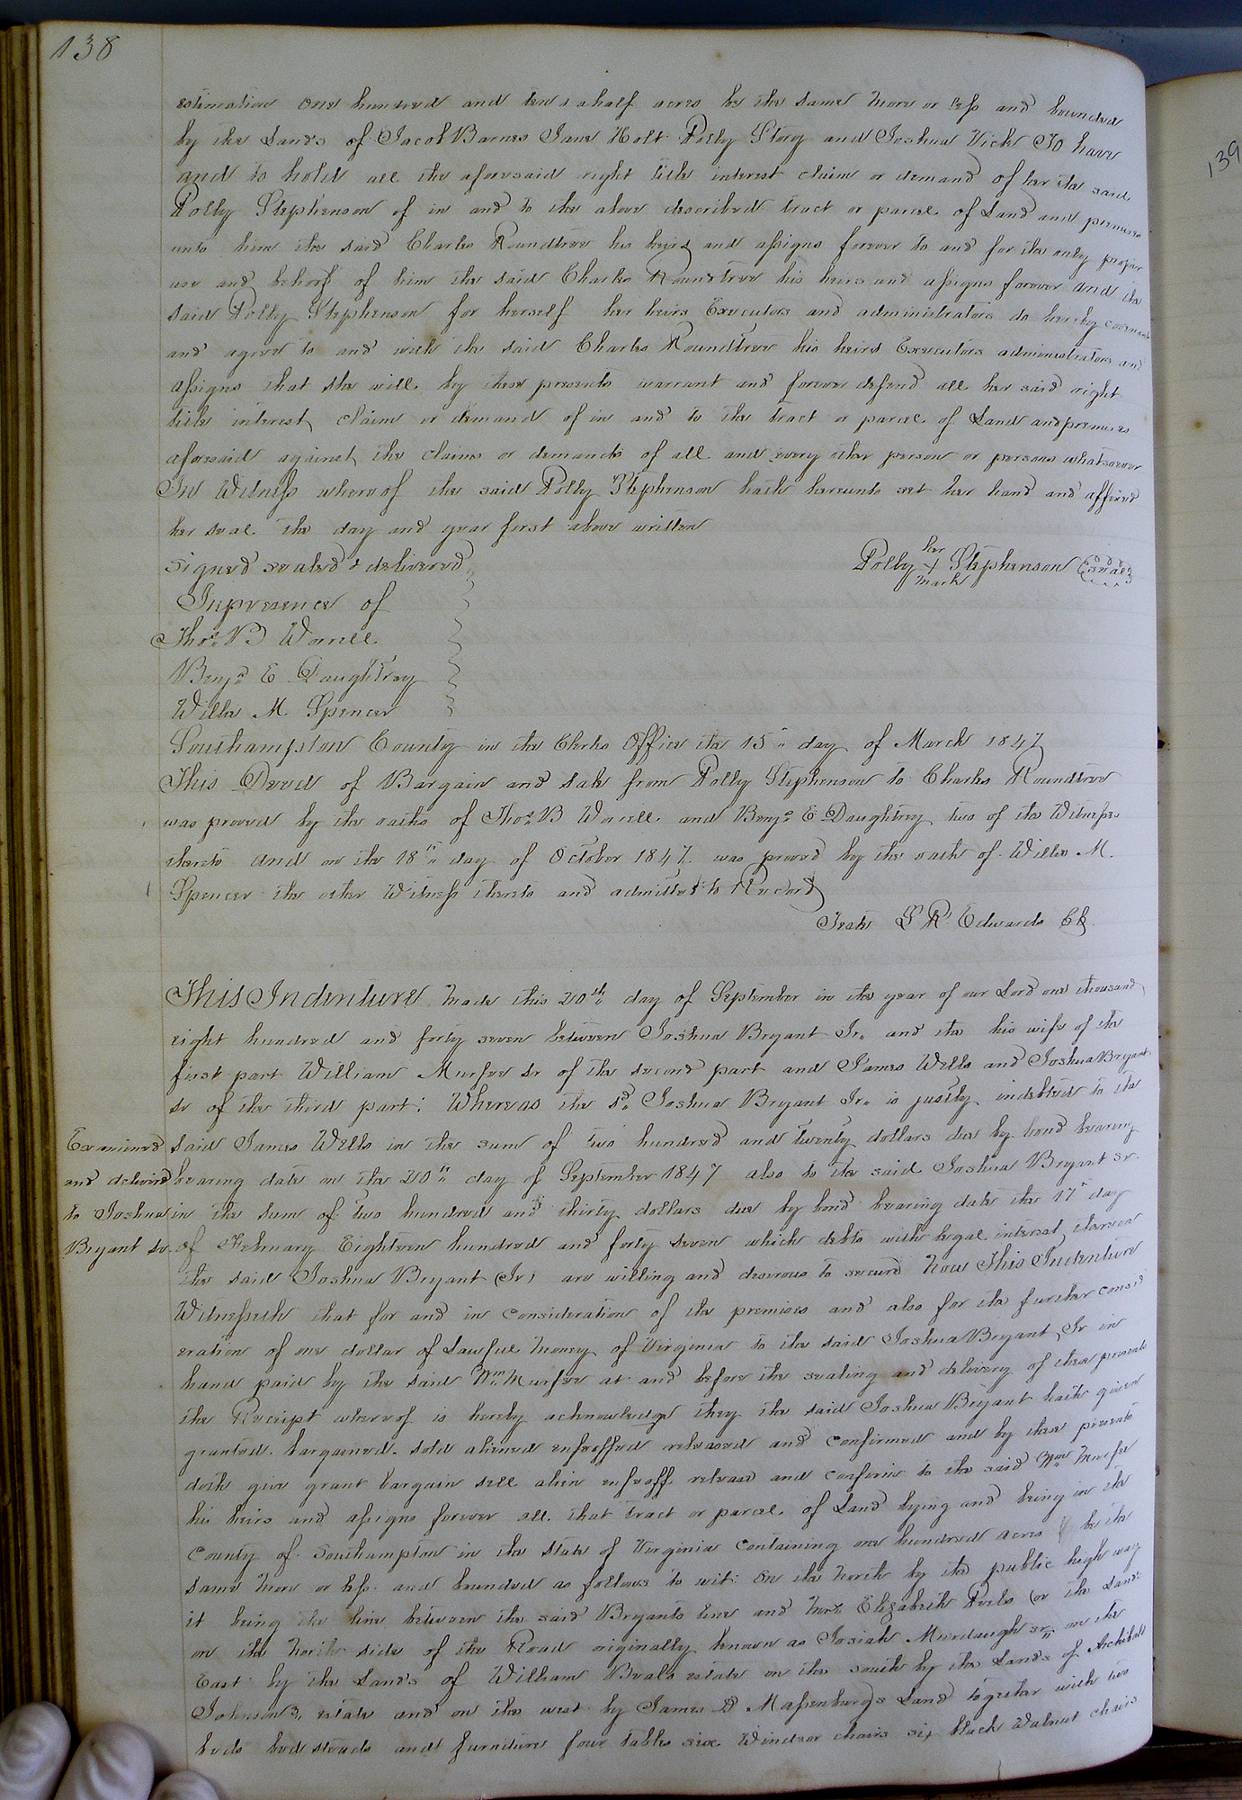 138
estimation one hundred and ten & a half acres be the same more or less and bounded
by the Lands of Jacob Barnes Jane Holt Polly Story and Joshua Vick To have
and to hold all the aforesaid right title interest claim or demand of her the said
Polly Stephenson of in and to the above described tract or parcel of Land and premises
unto him the said Charles Roundtree his heirs and assigns forever to and for the only proper
use and behoof of him the said Charles Roundtree his heirs and assigns forever and the
said Polly Stephenson for herself her heirs Executors and administrators do hereby covenant
and agree to and with the said Charles Roundtree his heirs Executors administrators and
assigns that she will by these presents warrant and forever defend all her said right
title interest claim or demand of in and to the tract or parcel of Land and premises
aforesaid against the claims or demands of all and every other person or persons whatsoever
In Witness whereof the said Polly Stephenson hath hereunto set her hand and affixed
her seal the day and year first above written
Signed sealed & delivered
her
Polly + Stephenson (seal)
mark
In presence of
Thos. B Worrell
Benjn. E Daughtrey
Willis M. Spencer
Southampton County in the Clerks Office the 15" day of March 1847
This Deed of Bargain and sale from Polly Stephenson to Charles Roundtree
was proved by the oaths of Thos. B Worrell and Benjn. E Daughtrey two of the Witnesses
thereto and on the 18th day of October 1847 was proved by the oath of Willis M.
Spencer the other Witness thereto and admitted to Record
Teste L R Edwards Ck
This Indenture made this 20th day of September in the year of our Lord one thousand
eight hundred and forty seven between Joshua Bryant Jr. and the his wife of the
first part William Murfee sr of the second part and James Wells and Joshua Bryant
sr of the third part: Whereas the sd. Joshua Bryant Jr. is justly indebted to the
Examined
and delivered
to Joshua
Bryant sr.
said James Wells in the sum of two hundred and twenty dollars due by bond bearing
bearing date on the 20th day of September 1847 also to the said Joshua Bryant sr.
in the sum of two hundred and thirty dollars due by bond bearing date the 17" day
of February Eighteen hundred and forty seven which debts with legal interest thereon
the said Joshua Bryant (Jr) are willing and desirous to secure Now This Indenture
Witnesseth that for and in consideration of the premises and also for the further consid
eration of one dollar of Lawful money of Virginia to the said Joshua Bryant Jr in
hand paid by the said Wm. Murfee at and before the sealing and delivery of these presents
the Receipt whereof is hereby acknowledge they the said Joshua Bryant hath given
granted. bargained. sold aliened enfeoffed released and confirmed and by these presents
doth give grant bargain sell alien enfeoff release and confirm to the said Wm Murfee
his heirs and assigns forever all that tract or parcel of Land lying and being in the
County of Southampton in the state of Virginia containing one hundred acres be the
same more or less and bounded as follows to wit: On the North by the public high way
it being the line between the said Bryants line and Mrs. Elizabeth (or the Land
on the North side of the Road originally known as Josiah Murdaugh sr" on the
East by the Lands of William Beals estate on the south by the Lands of Archibald
Johnson's estate and on the west by James D Massenburgs Land together with two
beds bedsteads and furniture four tables six Windsor chairs six black Walnut chairs
139